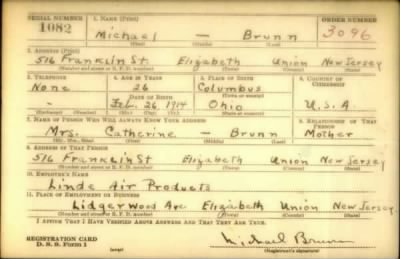 SERIAL NUMBER 1. NAME (Print) ORDER NUMBER
1082 Michael — Brunn 3096
(First) (Middle) (Last)
2. ADDRESS (Print)
516 Franklin St. Elizabeth Union New Jersey
(Number and street or R. F. D. number) (Town) (County) (State)
3. TELEPHONE 4. AGE IN YEARS 5. PLACE OF BIRTH 6. COUNTRY OF CITIZENSHIP
None 26 Columbus
DATE OF BIRTH (Town or county)
- Feb. 26, 1914 Ohio U.S.A.
(Exchange) (Number) (Mo.) (Day) (Yr.) (State or country)
7. NAME OF PERSON WHO WILL ALWAYS KNOW YOUR ADDRESS 8. RELATIONSHIP OF THAT PERSON
Mrs. Catherine — Brunn Mother
(Mr., Mrs., Miss) (First) (Middle) (Last)
9. ADDRESS OF THAT PERSON
516 Franklin St Elizabeth Union New Jersey
(Number and street or R. F. D. number) (Town) (County) (State)
10. EMPLOYER'S NAME
Linde Air Products
11. PLACE OF EMPLOYMENT OR BUSINESS
Lidgerwood Ave Elizabeth Union New Jersey
(Number and street or R. F. D. number) (Town) (County) (State)
I AFFIRM THAT I HAVE VERIFIED ABOVE ANSWERS AND THAT THEY ARE TRUE.
REGISTRATION CARD
D. S. S. Form 1 (over) Michael Brunn
(Registrant's signature)